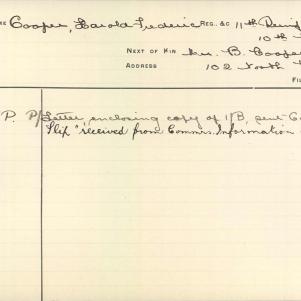 ME Cooper, Harold Frederic REG. &C 11th Reinf
10th
NEXT OF KIN Mrs. B. Cooper
ADDRESS 102 North
FI
P. P/ Letter, enclosing copy of 1/B, sent
Slip "received from Commrs. Information